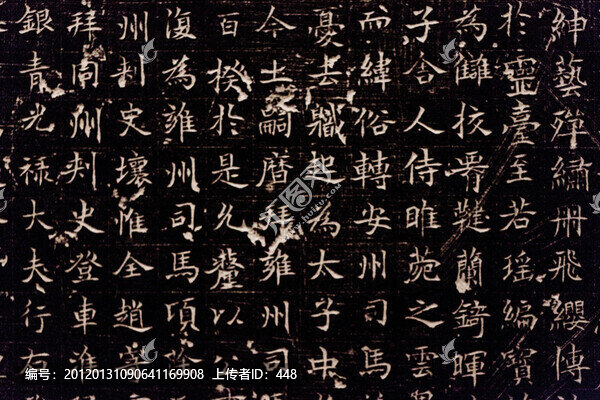 紳藝殫繡冊飛纓博
於靈臺至若瑶編寶
為讎挍蘭錡暉
子舍人侍睢苑之雲
而緯俗轉安州司馬
憂去職起為太子中
今土嗣曆拜雍州司
百揆於是允釐以公
復為雍州司馬項除
州刺史壤惟全趙
拜同州刺史登車
銀青光禄大夫行右
编号：20120131090641169908 上传者ID：448